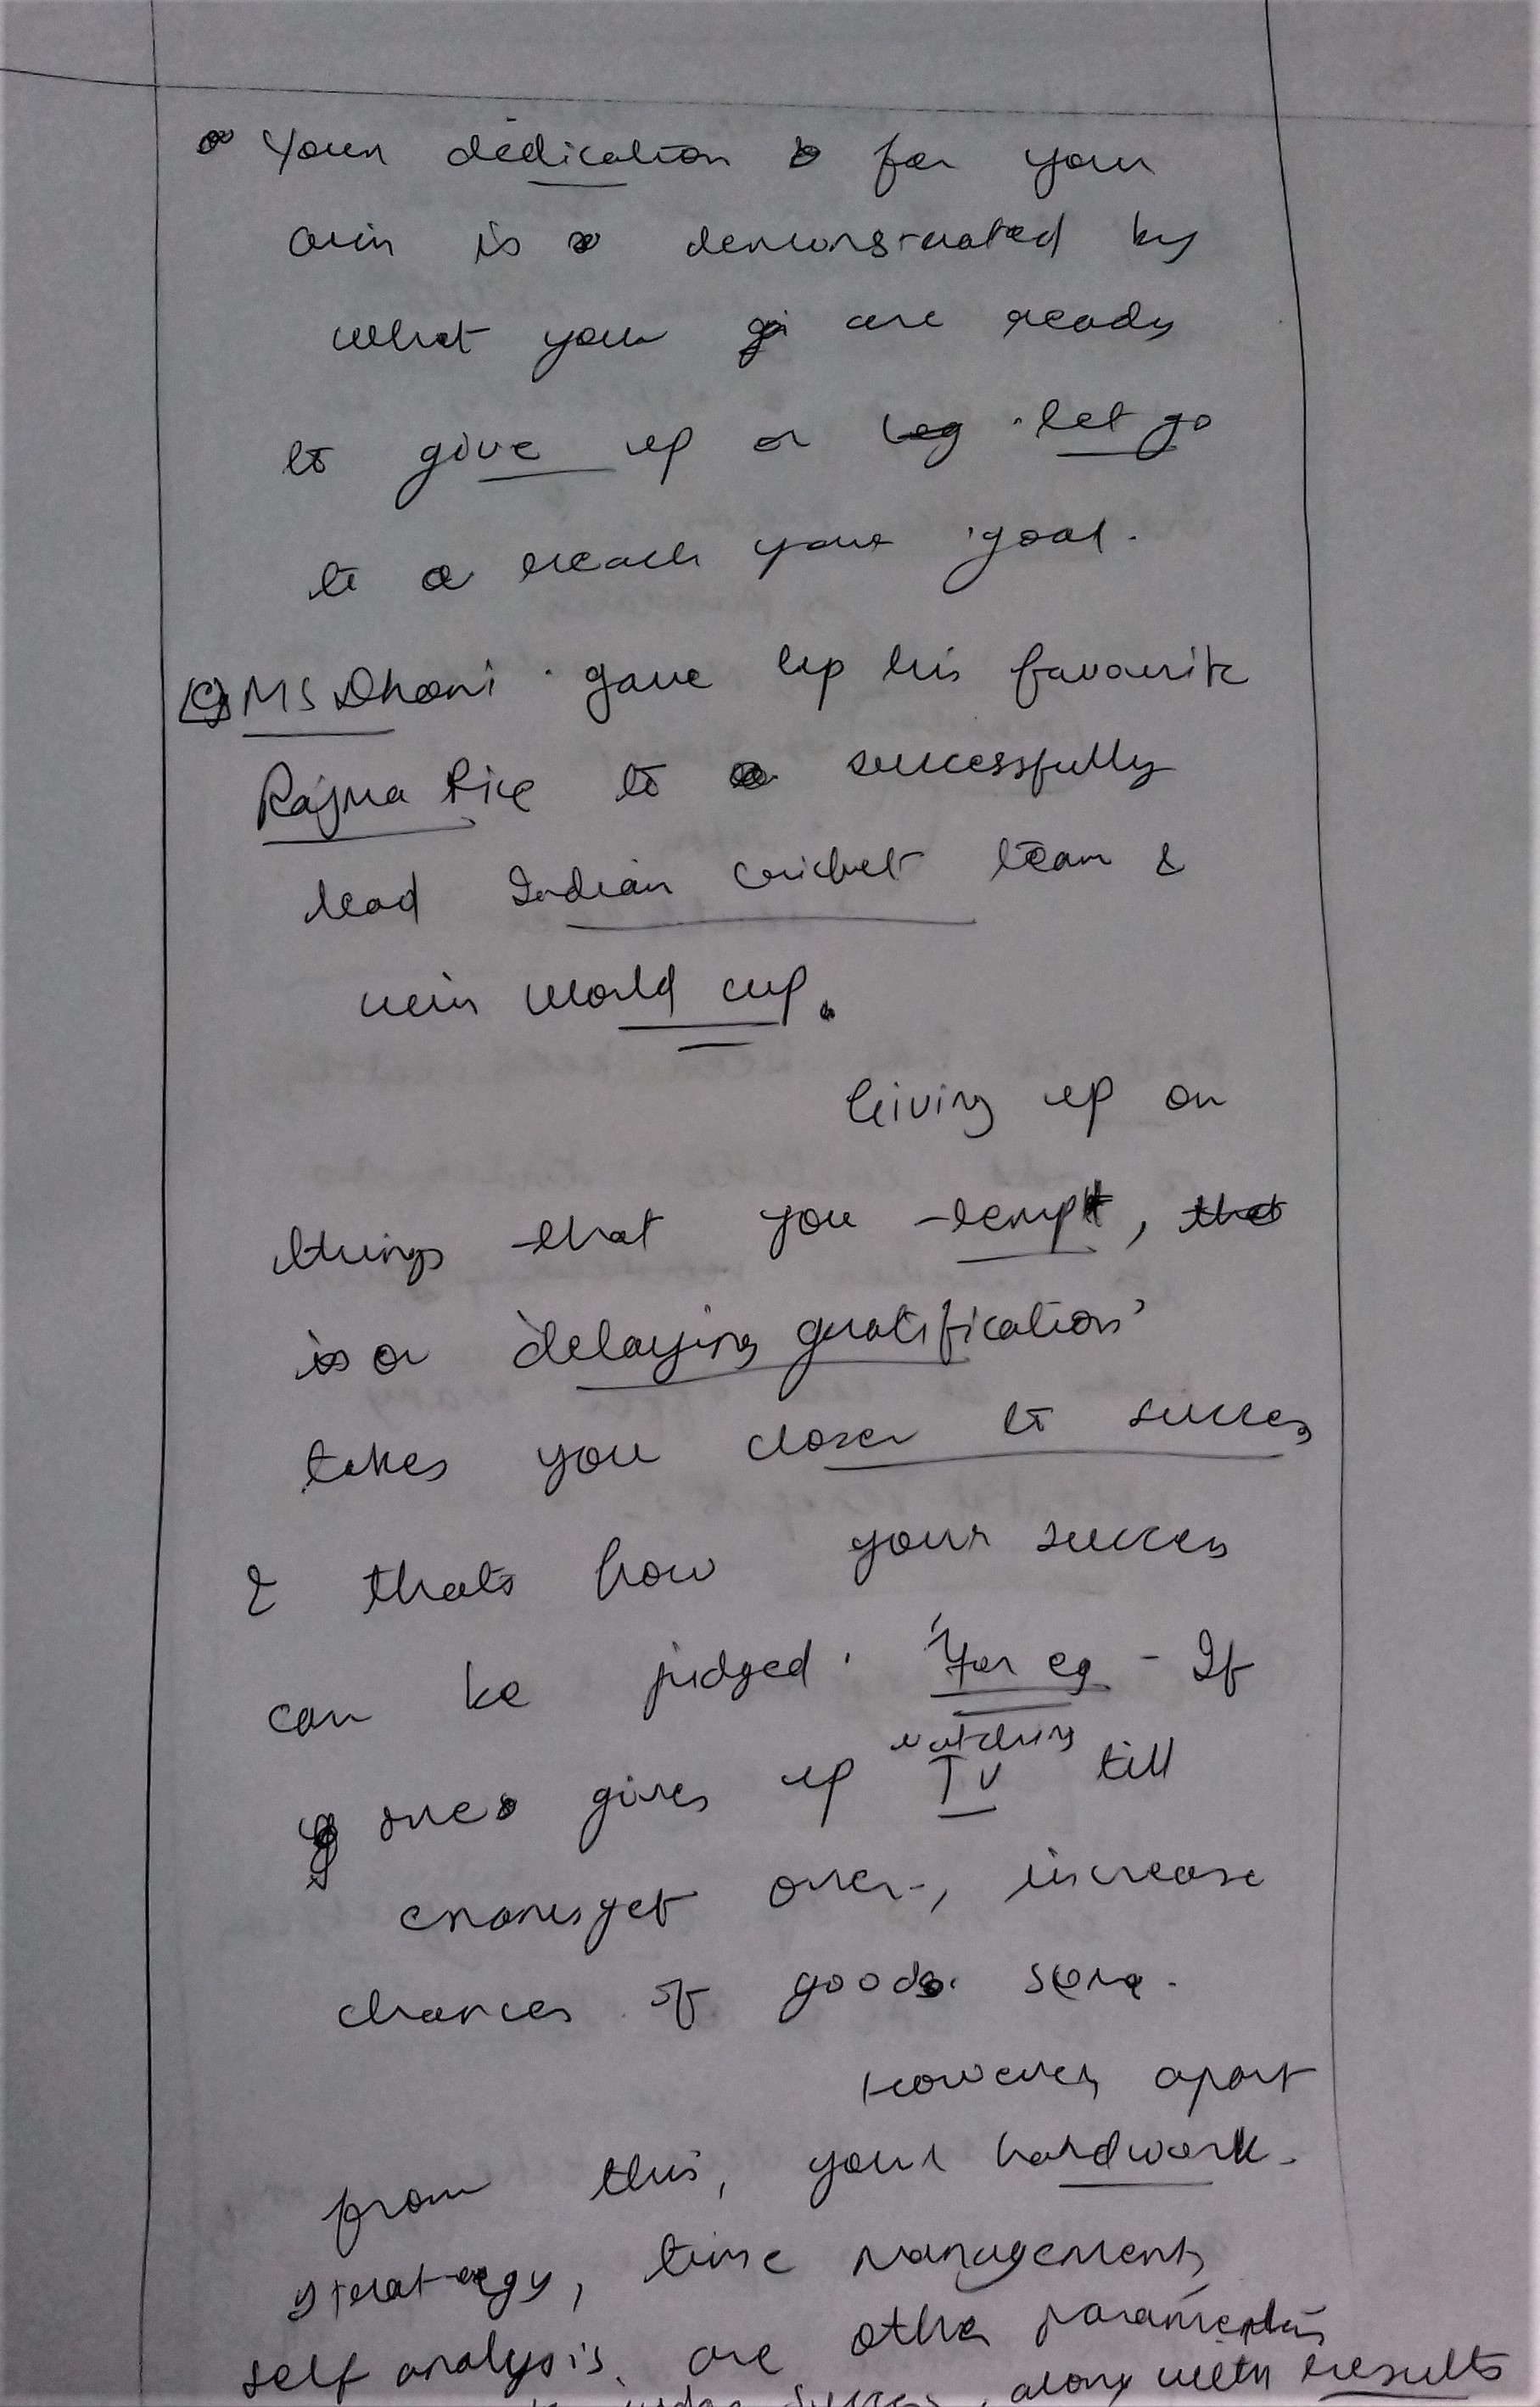 Your dedication for your
aim is demonstrated by
what you are ready
to give up or let go
to reach your goal.
eg MS Dhoni gave up his favourite
Rajma Rice to successfully
lead Indian cricket team &
win world cup.
Giving up on
things that you tempt,
or 'delaying gratification'
takes you closer to success
& thats how your success
can be judged. For eg - If
one gives up watching TV till
exams get over, increase
chances of good score.
However, apart
from this, your hardwork,
stratergy, time management,
self analysis are other parameters
along with results